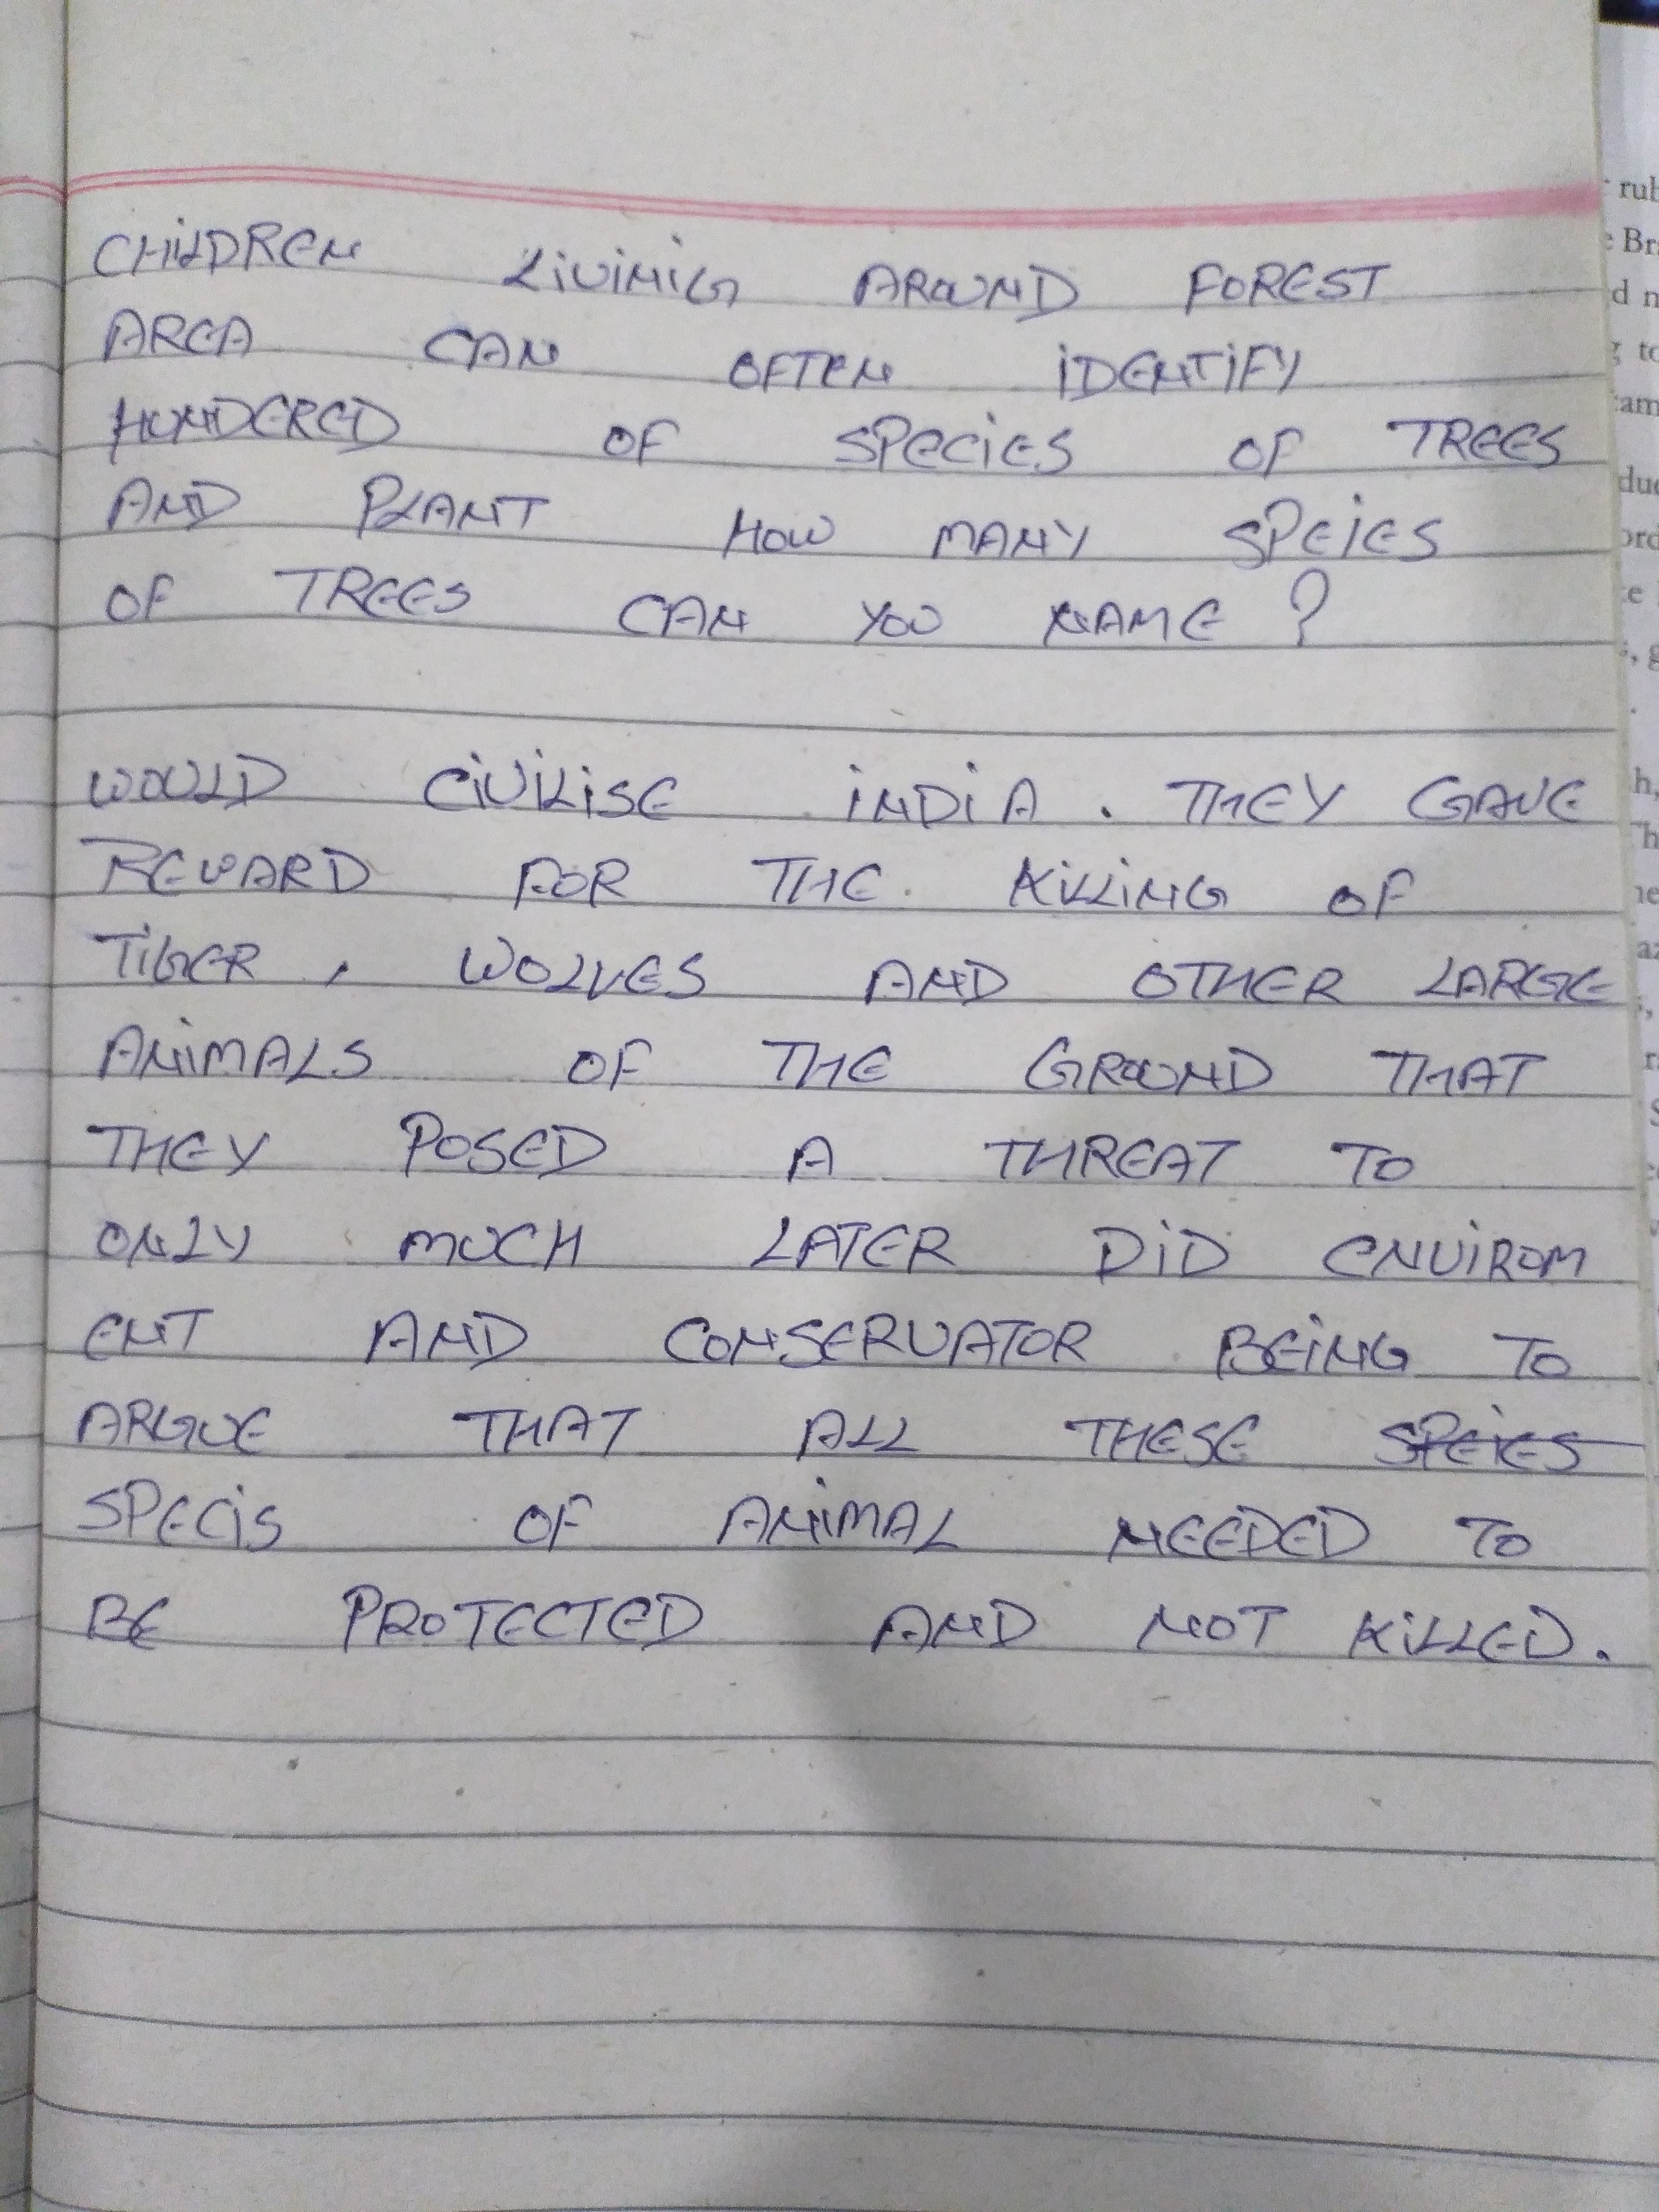 CHILDREN LIVINIG AROUND FOREST
AREA CAN OFTEN IDENTIFY
HUNDERED OF SPECIES OF TREES
AND PLANT HOW MANY SPEIES
OF TREES CAN YOU NAME ?
WOULD CIVILISE INDIA . THEY GAVE
REWARD FOR THE . KILLING OF
TIGER , WOLVES AND OTHER LARGE
ANIMALS OF THE GROUND THAT
THEY POSED A THREAT TO
ONLY MUCH LATER DID ENVIROM
ENT AND CONSERVATOR BEING TO
ARGUE THAT ALL THESE SPEIES
SPECIS OF ANIMAL NEEDED TO
BE PROTECTED AND NOT KILLED.